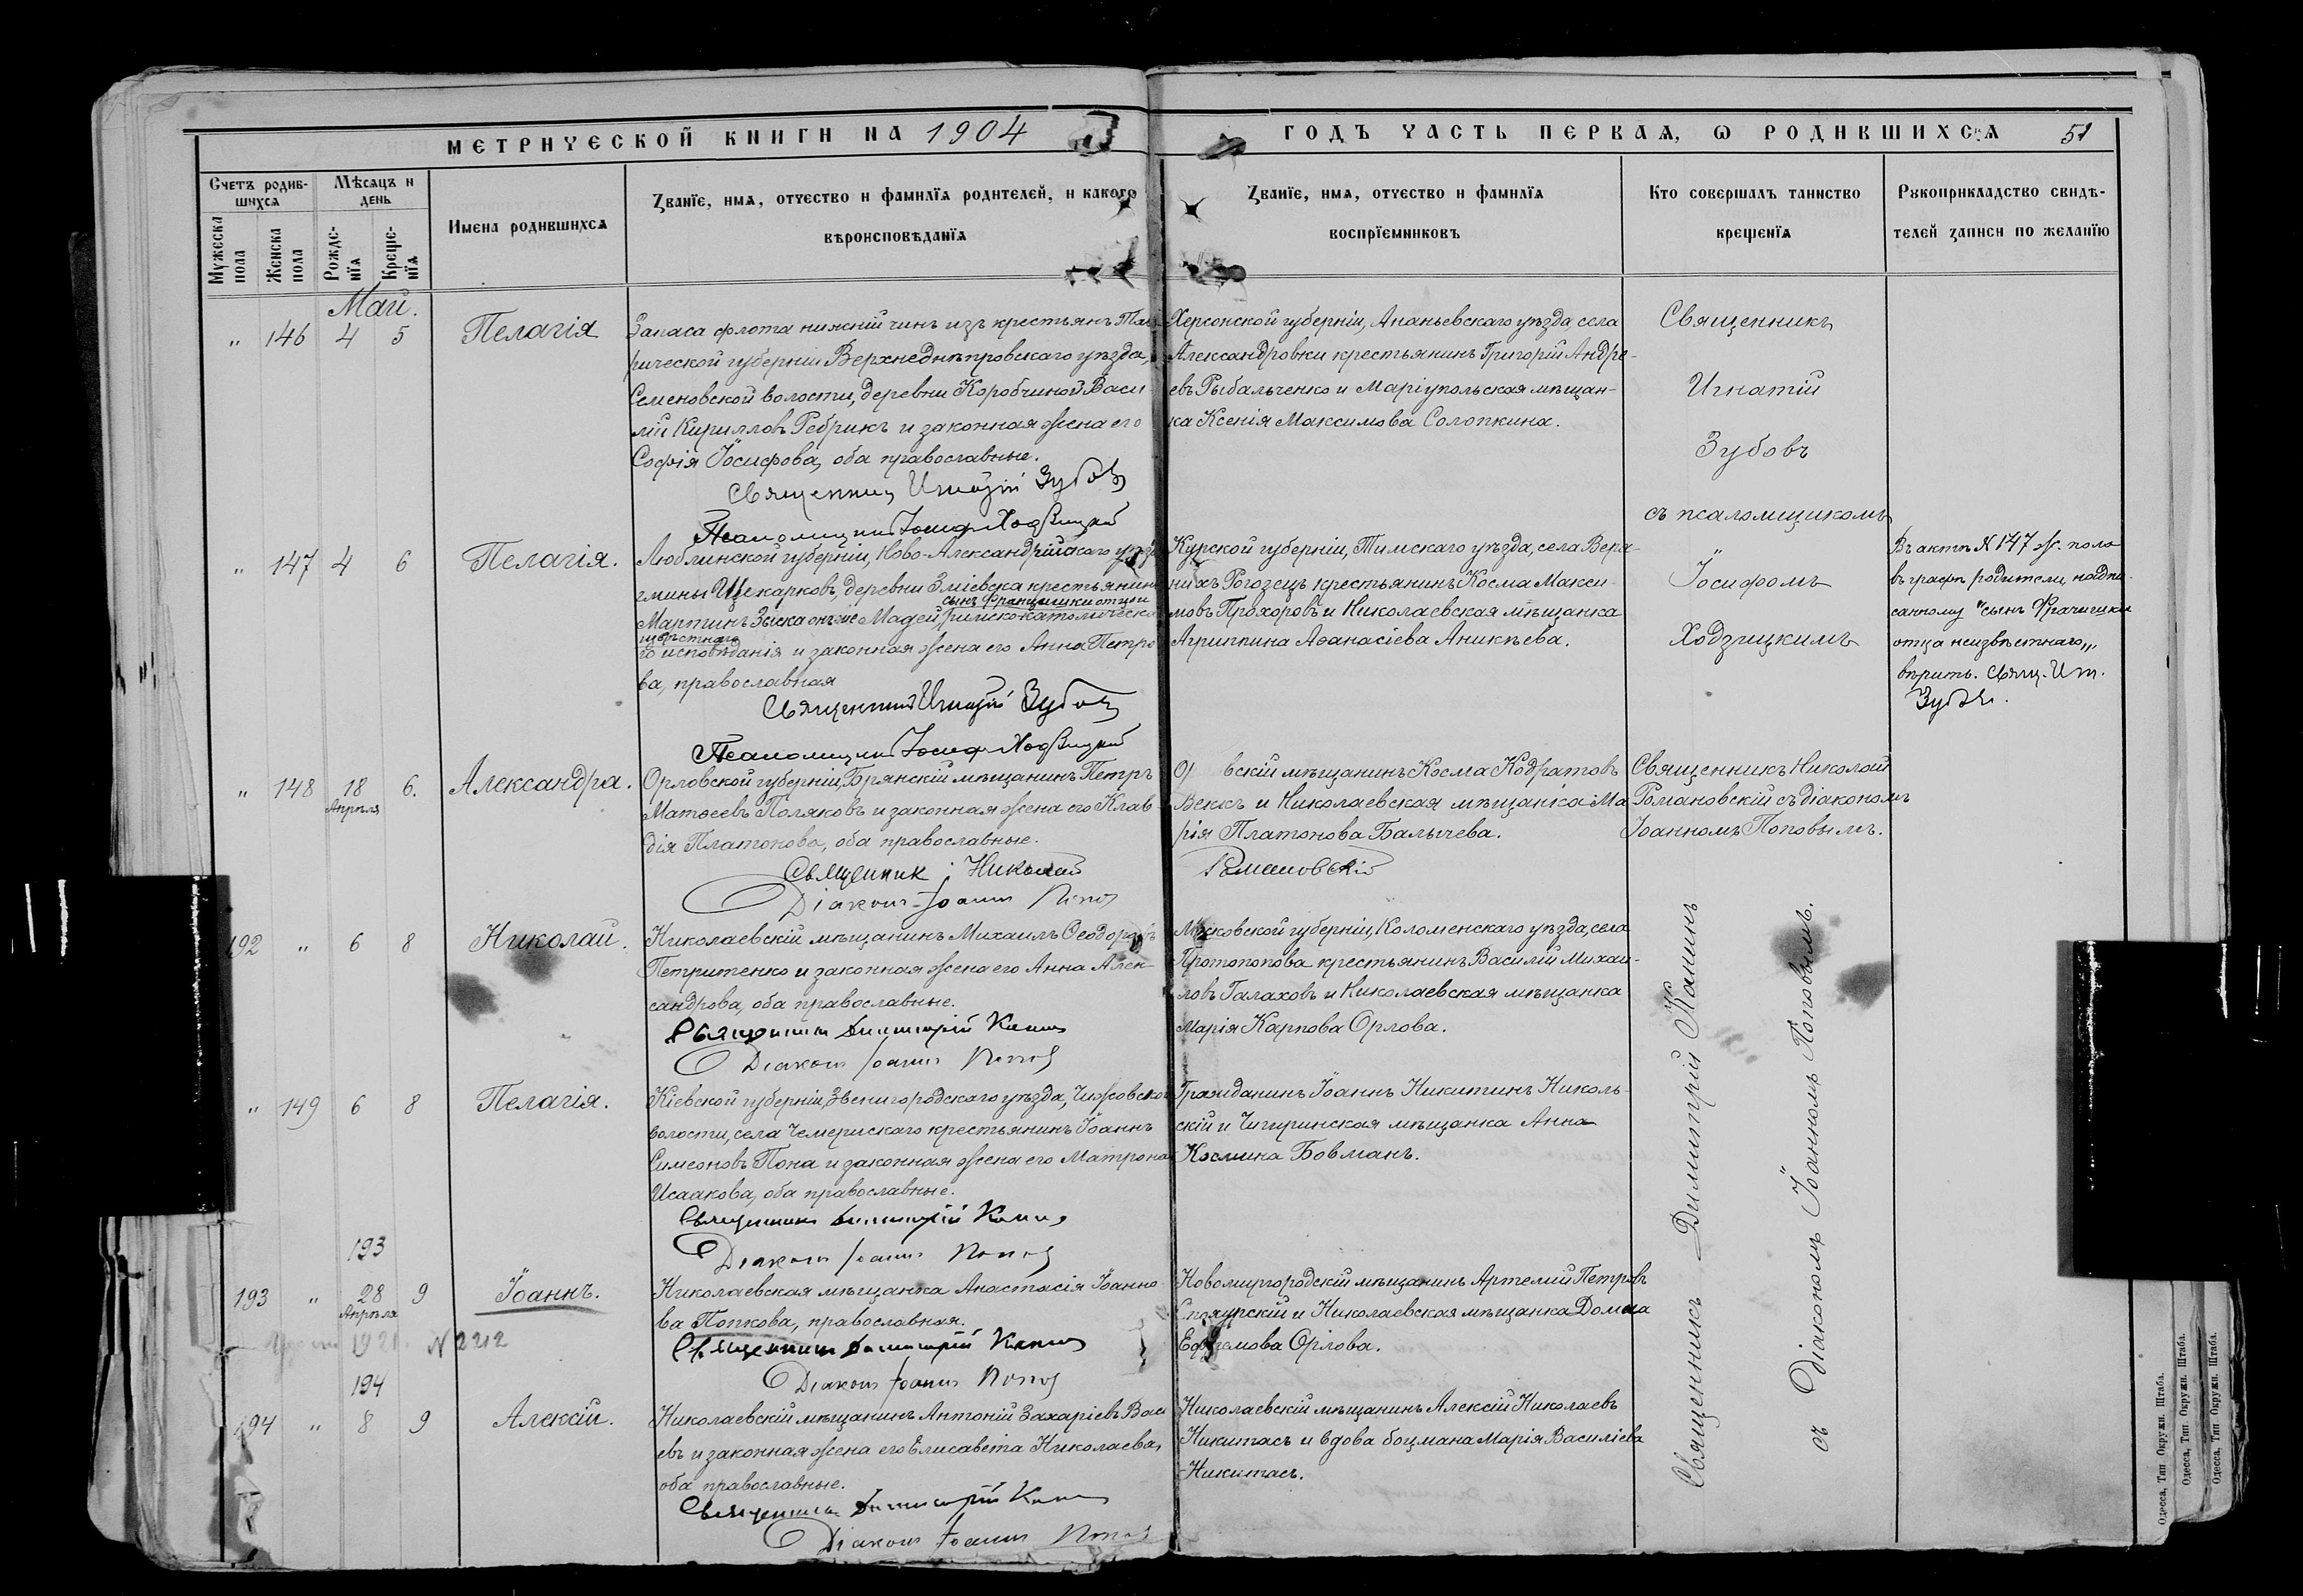 МЕТРИЧЕСКОЙ КНИГИ НА 1904
ГОДЪ ЧАСТЬ ПЕРВАЯ, Ѡ РОДИВШИХСЯ 51
Счетъ родив-
шихся
Мужеска
пола
Женска
пола
Мѣсяцъ и
день
Рожде-
нїя
Креще-
нїя
Имена родившихся
Званїе, имя, отчество и фамилїя родителей, и какого
вѣроисповѣданїя
Званїе, имя, отчество и фамилїя
воспрїемниковъ
Кто совершалъ таинство
крещенїя
Рукоприкладство свидѣ-
телей записи по желанїю
Май.
„ 146 4 5 Пелагія
Запаса флота нижній чинъ изъ крестьянъ Тав-
рической губерніи Верхнеднѣпровскаго уѣзда,
Семеновской волости, деревни Коробчиной Васи-
лій Кирилловъ Ребрикъ и законная жена его
Софія Іосифова, оба православные.
Священникъ Игнатій Зубовъ
Псаломщикъ Іосифъ Ходзицкій
Херсонской губерніи, Ананьевскаго уѣзда, села
Александровки крестьянинъ Григорій Андре-
евъ Рыбальченко и Маріупольская мѣщан-
ка Ксенія Максимова Солопкина.
Священникъ
Игнатій
Зубовъ
съ псаломщикомъ
Іосифомъ
Ходзицкимъ
„ 147 4 6 Пелагія.
Люблинской губерніи, Ново-Александрійскаго уѣзда
гмины Щекарковъ, деревни Зміевска крестьянинъ
сынъ Францишки отца не
Мартинъ Заска онъ же Мадей, римско-католическа
извѣстнаго
го исповѣданія и законная жена его Анна Петро
ва, православная
Священникъ Игнатій Зубовъ
Псаломщикъ Іосифъ Ходзицкій
Курской губерніи, Тимскаго уѣзда, села Верх-
нихъ Рогозецъ крестьянинъ Косма Макси-
мовъ Прохоровъ и Николаевская мѣщанка
Агриппина Аѳанасіева Аникѣева.
Въ актѣ № 147 ж. пола
въ графѣ родители, надпи-
санному "сынъ Францишки
отца неизвѣстнаго„
вѣрить. Свящ. Игн.
Зубовъ.
„ 148 18 6. Александра.
Апрѣля
Орловской губерніи, Брянскій мѣщанинъ Петръ
Матѳеевъ Поляковъ и законная жена его Клав
дія Платонова, оба православные.
Священник Николай
Романовскій
Діаконъ Іоаннъ Поповъ
вскій мѣщанинъ Косма Кодратовъ
Веккъ и Николаевская мѣщанка Ма
рія Платонова Балычева.
Священникъ Николай
Романовскій съ діакономъ
Іоанномъ Поповымъ.
192 „ 6 8 Николай.
Николаевскій мѣщанинъ Михаилъ Ѳеодоровъ
Петритенко и законная жена его Анна Алек-
сандрова, оба православные.
Священникъ Димитрій Канинъ
Діаконъ Іоаннъ Поповъ
Московской губерніи, Коломенскаго уѣзда, села
Протопопова крестьянинъ Василій Михаи-
ловъ Галаховъ и Николаевская мѣщанка
Марія Карпова Орлова.
Священникъ Димитрій Канинъ
съ Діакономъ Іоанномъ Поповымъ.
„ 149 6 8 Пелагія.
Кіевской губерніи, Звенигородскаго уѣзда, Чижовской
волости, села Чемерискаго крестьянинъ Іоаннъ
Симеоновъ Попа и законная жена его Матрона
Исаакова, оба православные.
Священникъ Димитрій Канинъ
Діаконъ Іоаннъ Поповъ
Гражданинъ Іоаннъ Никитинъ Николь-
скій и Чигиринская мѣщанка Анна
Космина Бовманъ.
193
193 „ 28 9 Іоаннъ.
Апрѣля
1921. N 2212
Николаевская мѣщанка Анастасія Іоанно-
ва Попкова, православная.
Священникъ Димитрій Канинъ
Діаконъ Іоаннъ Поповъ
Новомиргородскій мѣщанинъ Артемій Петровъ
и Николаевская мѣщанка Домна
Ефремова Орлова.
194
194 „ 8 9 Алексій.
Николаевскій мѣщанинъ Антоній Захаріевъ Васи
евъ и законная жена его Елисавета Николаева,
оба православные.
Священникъ Димитрій Канинъ
Діаконъ Іоаннъ Поповъ
Николаевскій мѣщанинъ Алексій Николаевъ
Никитасъ и вдова боцмана Марія Василіева
Никитасъ.
Одесса, Тип. Окружн. Штаба.
Одесса, Тип. Окружн. Штаба.
Одесса, Тип. Окружн. Штаба.